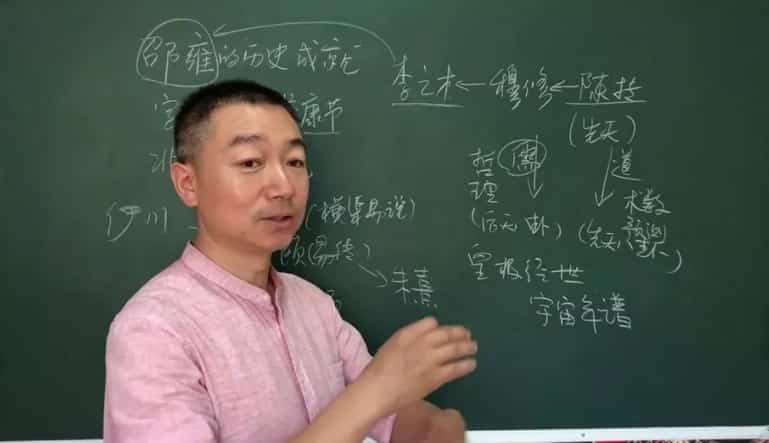 邵雍的历史成就
李之才←穆修←陈抟
康节
(先天)
儒
道
哲理
术数
预测
伊川
(横渠易说)
(后天卦)
(先天
颐(易传)
皇极经世
朱熹
宇宙年谱